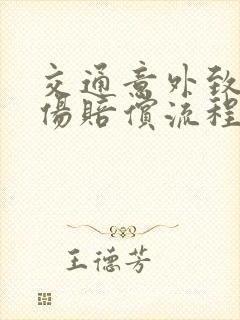 交通意外致
傷賠償流程
王德芳